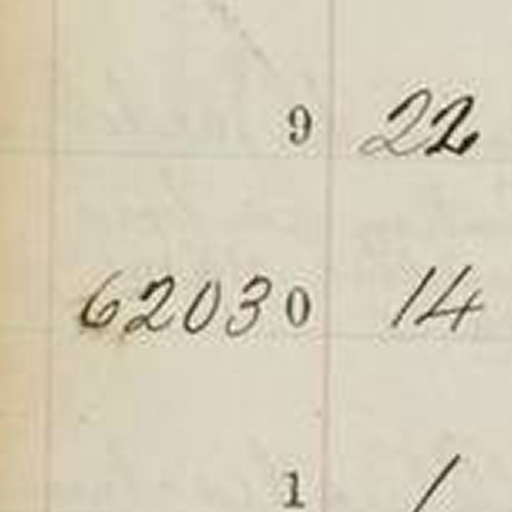 9 22
62030 14
1 /